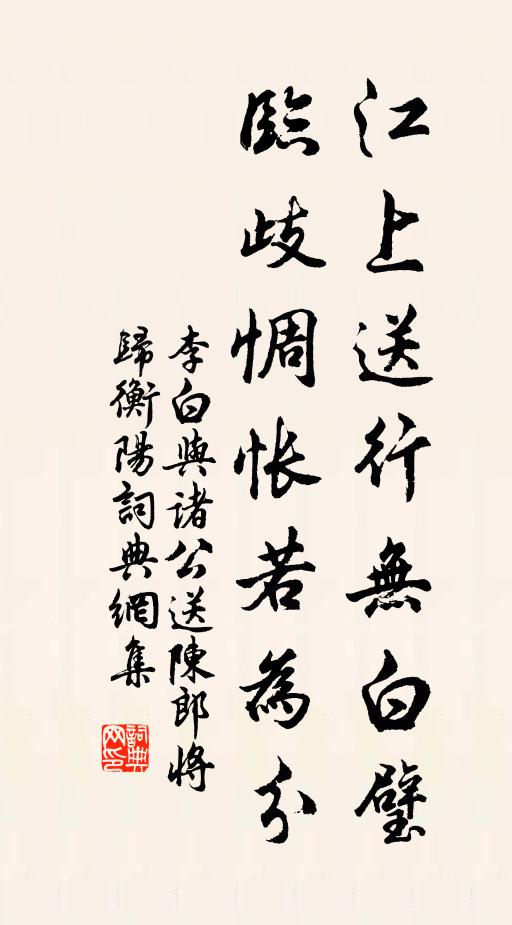 江上送行無白璧
臨歧惆悵若為分
李白與諸公送陳郎將
歸衡陽詞典網集
詞典
网印